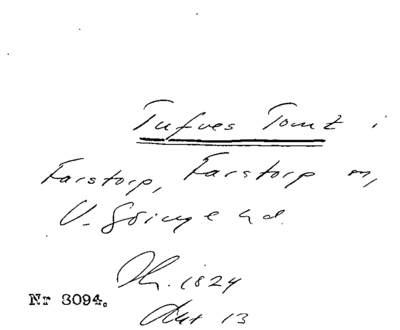 Tufves Tomt i
Farstorp, Farstorp sn,
V. Göinge hd.
Nr 3094.
Sk. 1824
Akt 13